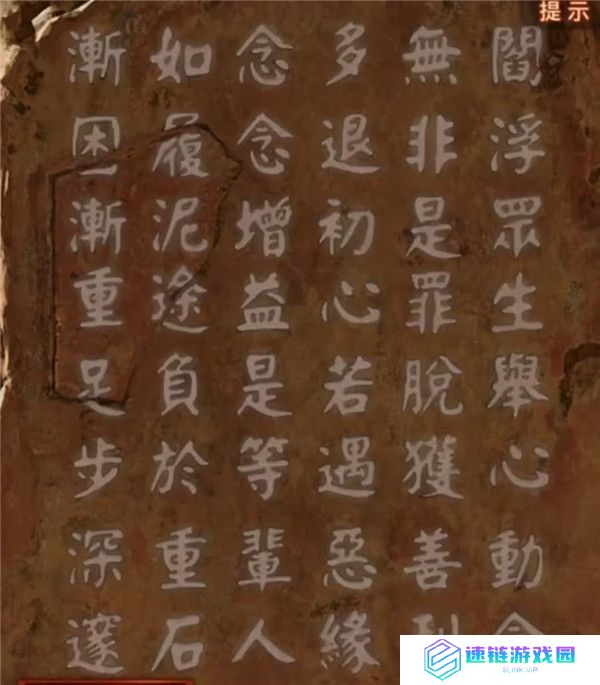 提示
閻浮眾生舉心動
無非是罪脫獲善
多退初心若遇惡緣
念念增益是等輩人
如履泥途負於重石
漸困漸重足步深邃
速链游戏园
SLINK.VIP